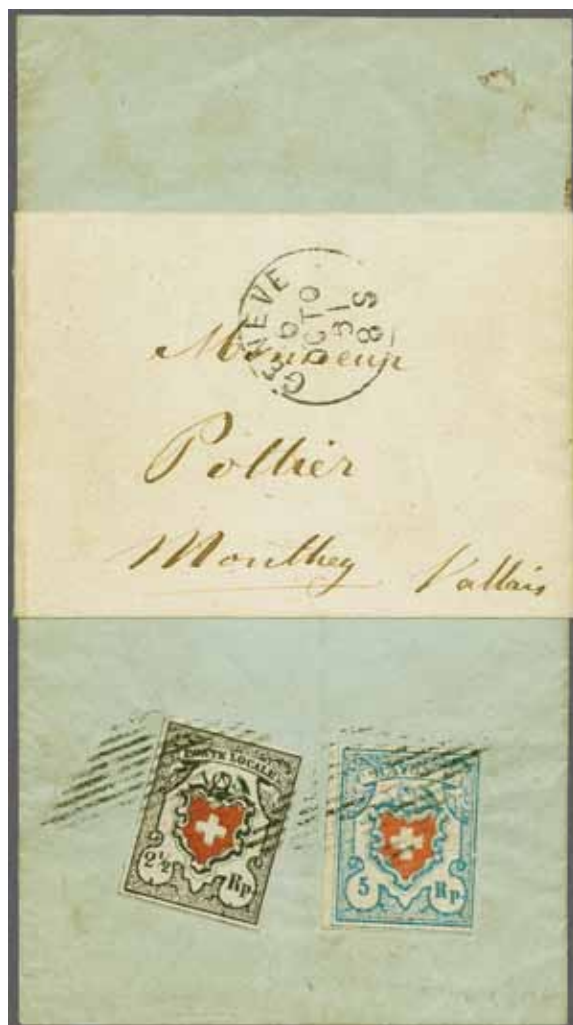 GENÈVE
9
OCTO
31
8S
Monsieur
Pollier
Monthey Vallais
POSTE LOCALE
2½ Rp.
RAYON
5 Rp.